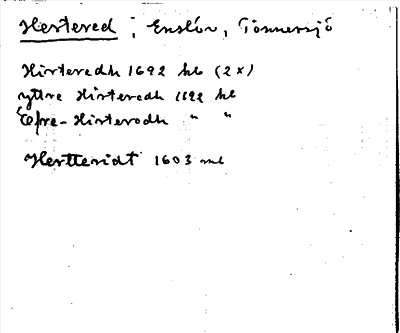 Hertered ; Enslöv, Tönnersjö
Hirteredh 1692 hl (2x)
yttre Hirteredh 1692 hl
Efre-Hirterodh " "
Hertteridt 1603 ml